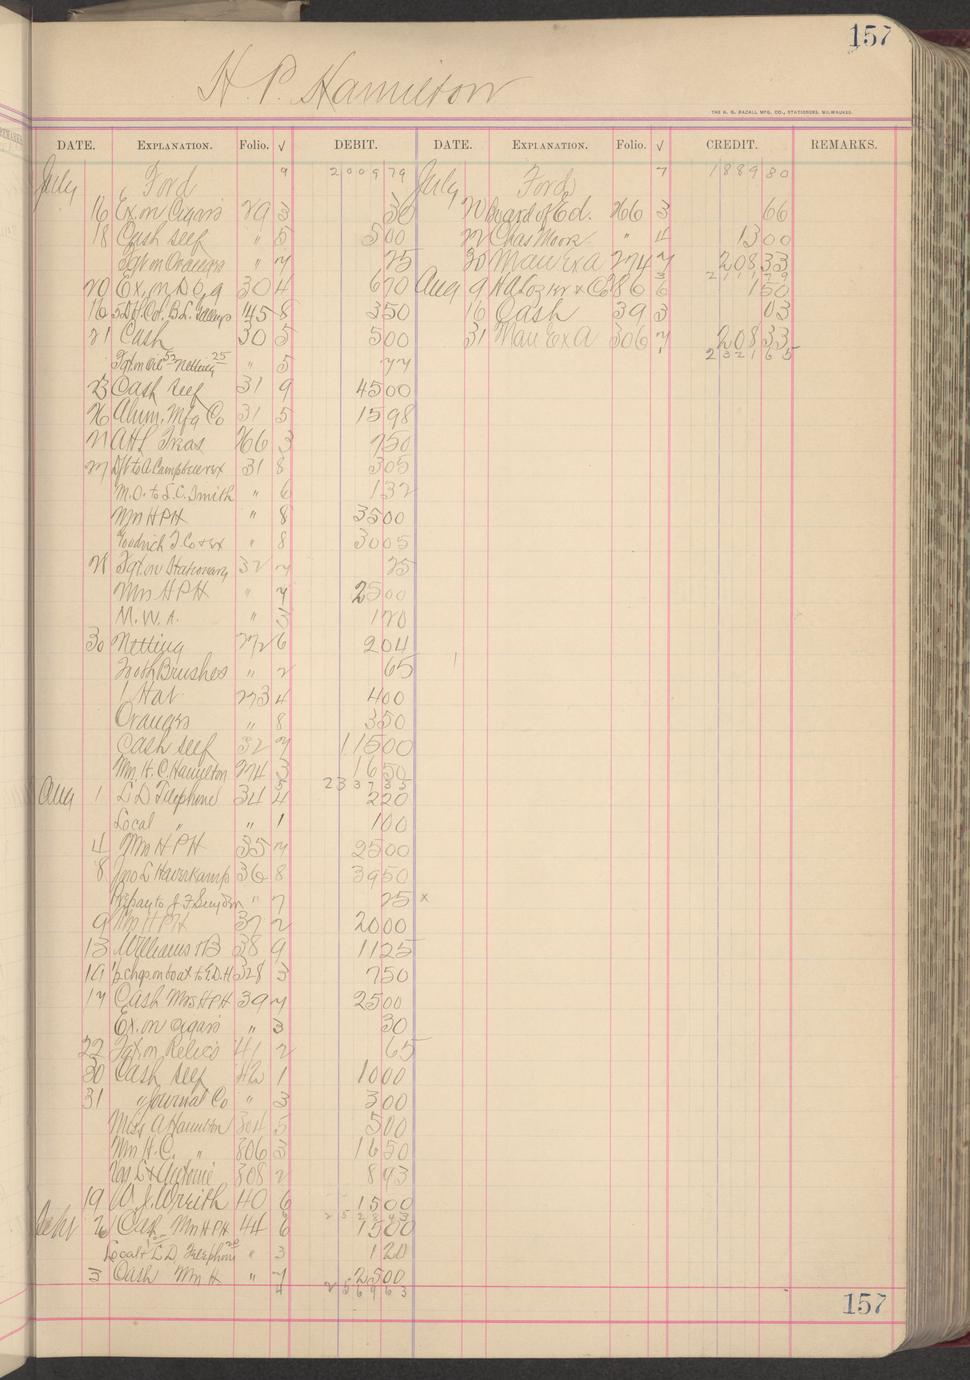 157
H. P. Hamilton
THE H. G. RAZALL MFG. CO., STATIONERS, MILWAUKEE
DATE. EXPLANATION. Folio. √ DEBIT. DATE. EXPLANATION. Folio. √ CREDIT. REMARKS.
July Ford 9 2009 79 July Ford 7 1889 80
16 Ex. on Cigars 29 3 30 20 Board of Ed. 266 3 66
18 Cash self " 5 5 00 22 Chas Moore " 4 13 00
Fgt on Oranges " 7 25 30 Mau Ex A 274 7 208 33
2111 79
20 Ex. on 304 6 70 Aug 9 & Co 86 6 1 50
16 145 8 3 50 16 Cash 39 3 03
21 Cash 30 5 5 00 31 Mau Ex A 306 7 208 33
2321 65
Fgt. on Oil 52 Netting 25 " 5 77
23 Cash self 31 9 45 00
26 Alum. Mfg Co 31 5 15 98
Treas 266 3 7 50
27 to A Campbell 31 8 3 05
M.O. to L.C. Smith " 6 1 32
Mrs HPH " 8 35 00
Goodrich T. Co " 8 30 05
28 Fgt. on Stationary 32 7 25
Mrs HPH " 7 25 00
M. W. A. " 3 1 20
30 Netting 272 6 2 04
Tooth Brushes " 2 65
1 Hat 273 4 4 00
Oranges " 8 3 50
Cash self 32 7 115 00
Mrs. H. C. Hamilton 274 3 16 50
2337 35
Aug 1 L D Telephone 34 4 2 20
Local " " 1 1 00
4 Mrs HPH 35 7 25 00
8 Jno L Haverkamp 36 8 39 50
to J F " 7 25 x
9 Mrs HPH 37 2 20 00
13 Williams 38 9 11 25
19 ½ chgs. on boat to E.D.H. 328 3 7 50
17 Cash Mrs HPH 39 7 25 00
Ex. on cigars " 3 30
22 Fgt on Relics 41 2 65
30 Cash self 42 1 10 00
31 " Journal Co " 3 3 00
A Hamilton 304 5 5 00
Mrs H.C. " 306 3 16 50
308 2 8 93
19 W. J. 40 6 15 00
2528 43
Sept 2 Cash Mrs HPH 44 6 15 00
Local & L D Telephone 20 " 3 1 20
3 Cash Mrs H " 7 25 00
4 2569 63
157